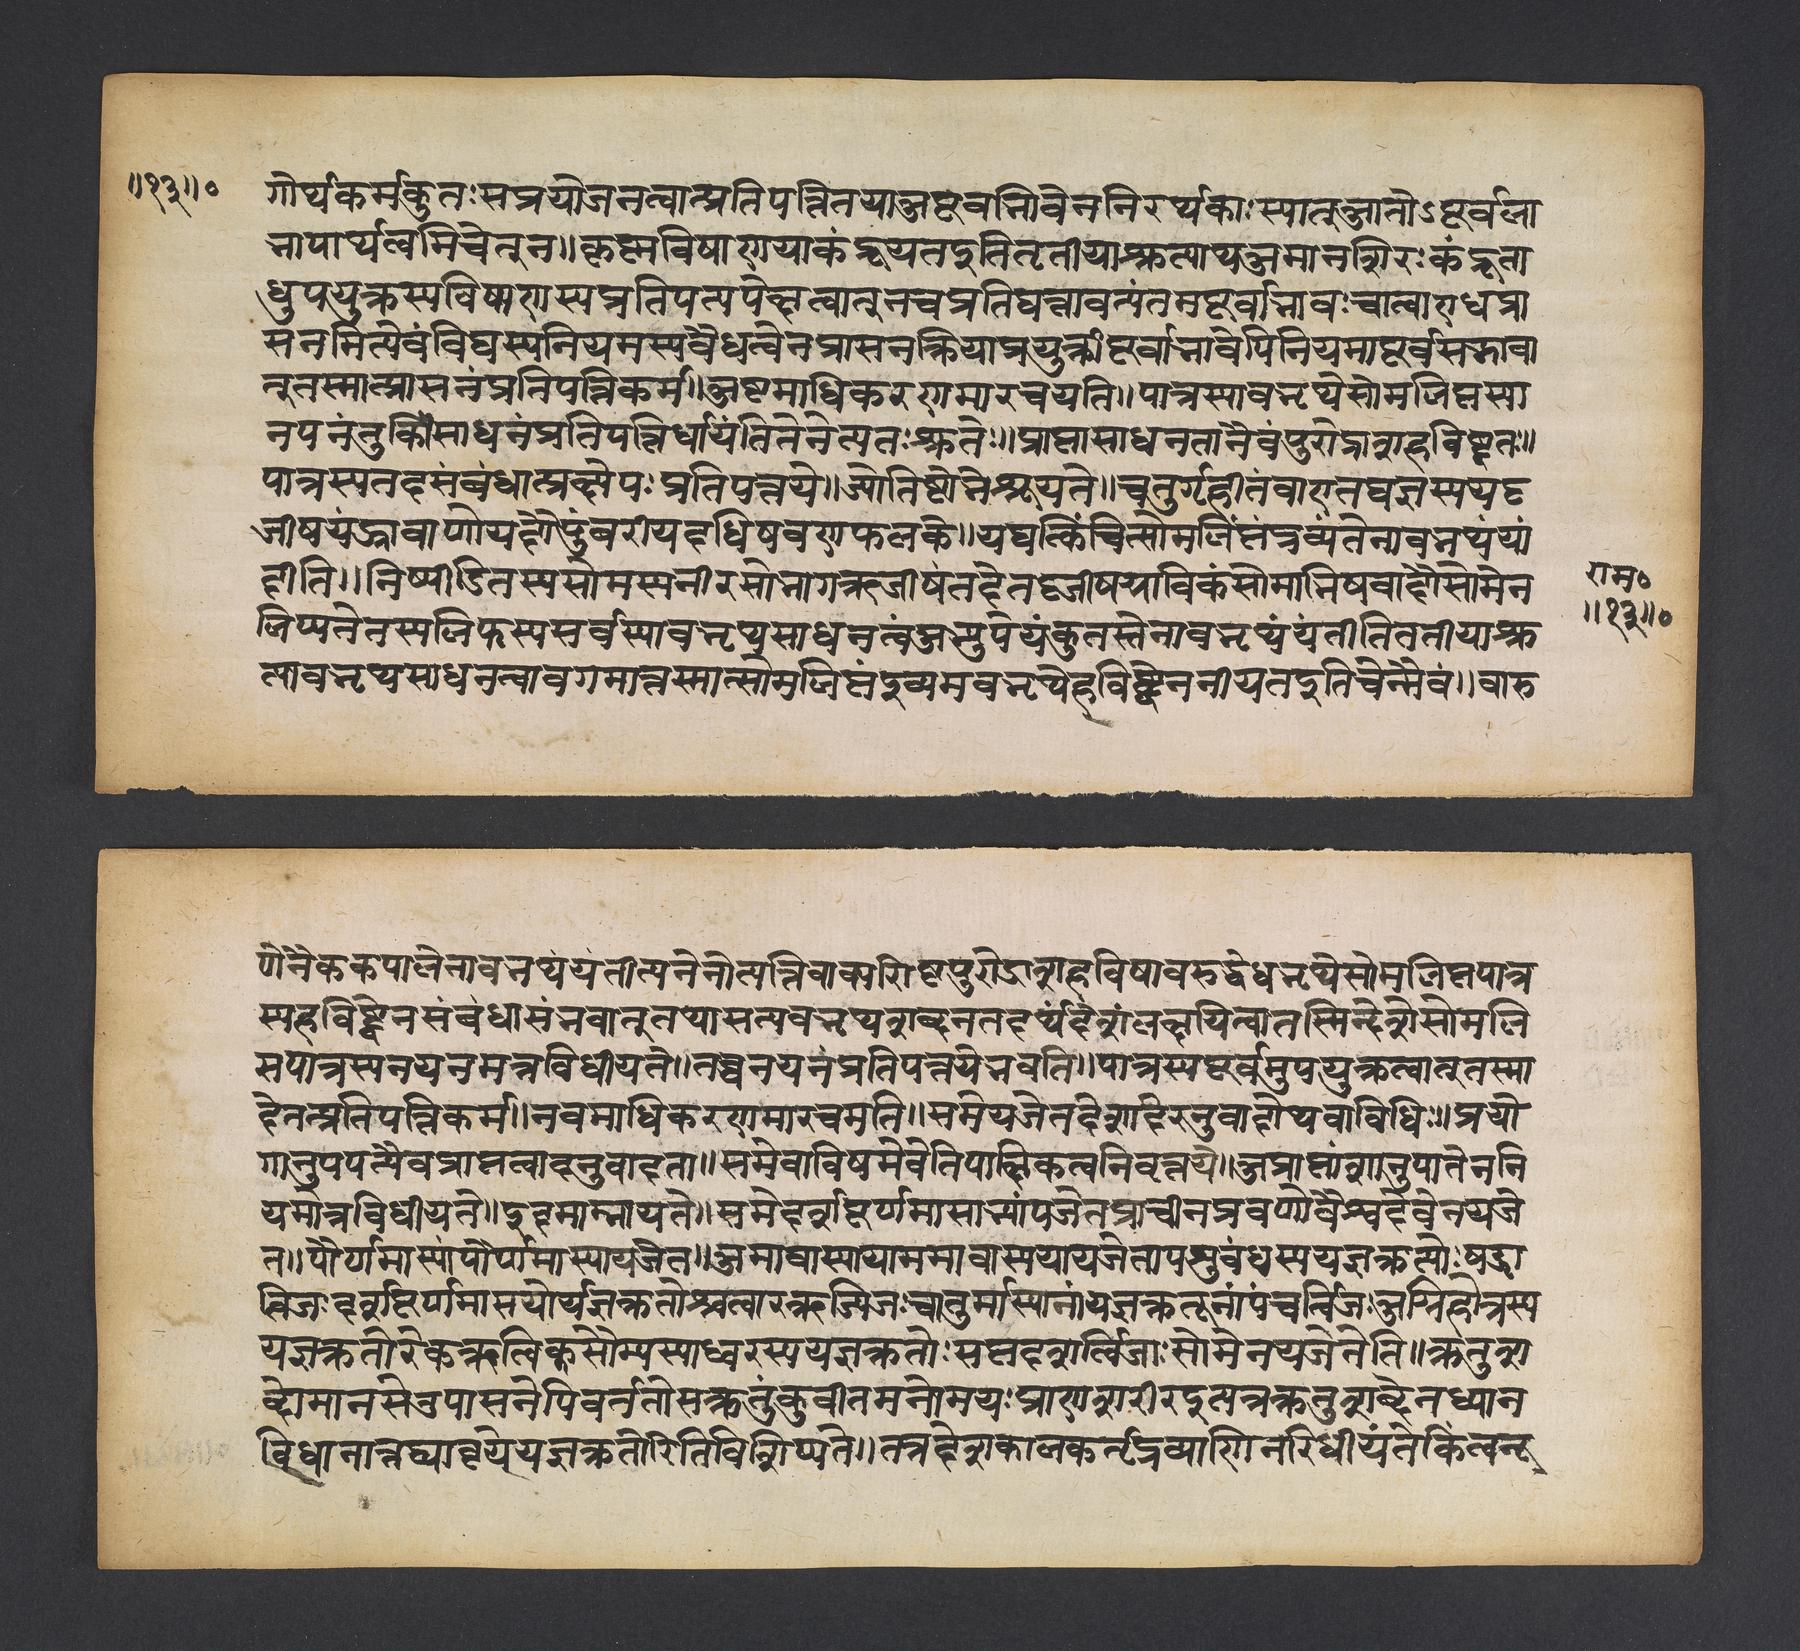 ॥१३॥०
गोर्थकर्मकुतःसप्रयोजनत्वात्प्रतिपत्तितयाअष्टवभावेननिरर्थकाःस्यात्अतोऽष्टर्वला
नापार्थत्वमिचेत्न॥कृष्णविषाणयाकंडूयतइतितृतीयाश्रुत्याथजमानशिरःकंडूता
धुपयुक्तस्यविषाणस्यप्रतिपत्यपेक्षत्वात्नचप्रतिपत्तावत्यंतमष्टर्वाभावःचात्वाणधप्रा
सनमित्येवंविघस्यनियमस्यवैधत्वेनप्रासनक्रियाप्रयुक्तांष्टर्वाभावेपिनियमाष्टर्वसद्भावा
त्तस्मात्प्रासनंप्रतिपत्तिकर्म॥अष्टमाधिकरणमारचयति॥पात्रस्यावभृथेसोमलिप्तस्या
नपनंतुकिं॥साधनंप्रतिपत्तिर्धायंतितेनेत्यतःश्रुतेः॥प्राप्तासाधनतानैवंपुरोडाशहविष्टृतः॥
पात्रस्यतदसंबंधात्प्रक्षेपःप्रतिपत्तये॥ज्योतिष्टोमेश्रूयते॥चतुर्गृहीतंवाएतघज्ञस्ययदृ
जीषयंज्रावाणोयदौदुंबरीयदधिषवणफलके॥यघत्किंचित्सोमलिंप्तंत्रव्यंतेनावभृथंयां
तीति॥निष्पीडितस्यसोमस्यनीरसोभागऋजीषंतदेतदृजीषयाविकंसोमाभिषवादौसोमेन
लिप्यतेतस्यलिप्तस्यसर्वस्यावभृथसाधनत्वंअभ्युपेयंकुतस्तेनावभृथंयंतीतिततीयाश्रु
त्यावभृथसाधनत्वावगमात्तस्मात्सोमलिप्तंद्रव्यमवभृथेहविष्ट्वेननीयतइतिचेन्मैवं॥वारु
राम०
॥१३॥०
णेनैककपालेनावभथंयंतीत्यनेनोत्पत्तिवाक्यशिष्टपुरोडाशहविषावरुद्धेधभृथेसोमलिप्तपात्र
स्यहविष्ट्वेनसंबंधासंभवात्तथासत्यवभृथशब्दनतदर्थदेशंलक्षयित्वातस्मिन्देशेसोमलि
सपात्रस्यनयनमत्रविधीयते॥तच्चनयनंप्रतिपत्तयेभवति॥पात्रस्यष्टर्वमुपयुक्तत्वात्तस्मा
देतत्प्रतिपत्तिकर्म॥नवमाधिकरणमारचमति॥समेयजेतदेशादेरनुवादोथवाविधिः॥प्रयो
गानुपपत्यैवप्राप्तत्वादनुवादता॥समेवाविषमेवेतिपाक्षिकत्वनिवृत्तये॥अप्राप्तांशानुपातेननि
यमोत्रविधीयते॥इदमाम्नायते॥समेदर्शष्टर्णमासाभ्यांपजेतप्राचीनप्रवणेवैश्वदेवेनयजे
त॥पौर्णमास्यांपौर्णमास्यायजेत॥अमावास्यायाममावास्ययायजेतापशुबंधस्ययज्ञक्रतोःषड्ा
त्विजःदर्शष्टर्णमासयोर्यज्ञक्रतोश्चत्वारऋत्विजःचातुर्मास्यानांयज्ञक्रतूनांपंचर्त्विजःअग्निहोत्रस्य
यज्ञक्रतोरेकऋत्विक्सौम्यस्याध्वरस्ययज्ञक्रतोःसप्तदशर्त्विजःसोमेनयजेतेति॥ऋतुशा
ब्दोमानसेउपासनेपिवर्ततोसक्रतुंकुवीतमनोमयःप्राणशरीरइत्यत्रक्रतुशब्देनध्यान
विधानात्तघ्यावृत्तयेयज्ञक्रतोरितिविशिष्यते॥तत्रदेशकालकर्तृद्रव्याणिनविधीयंतेकिंत्वनू